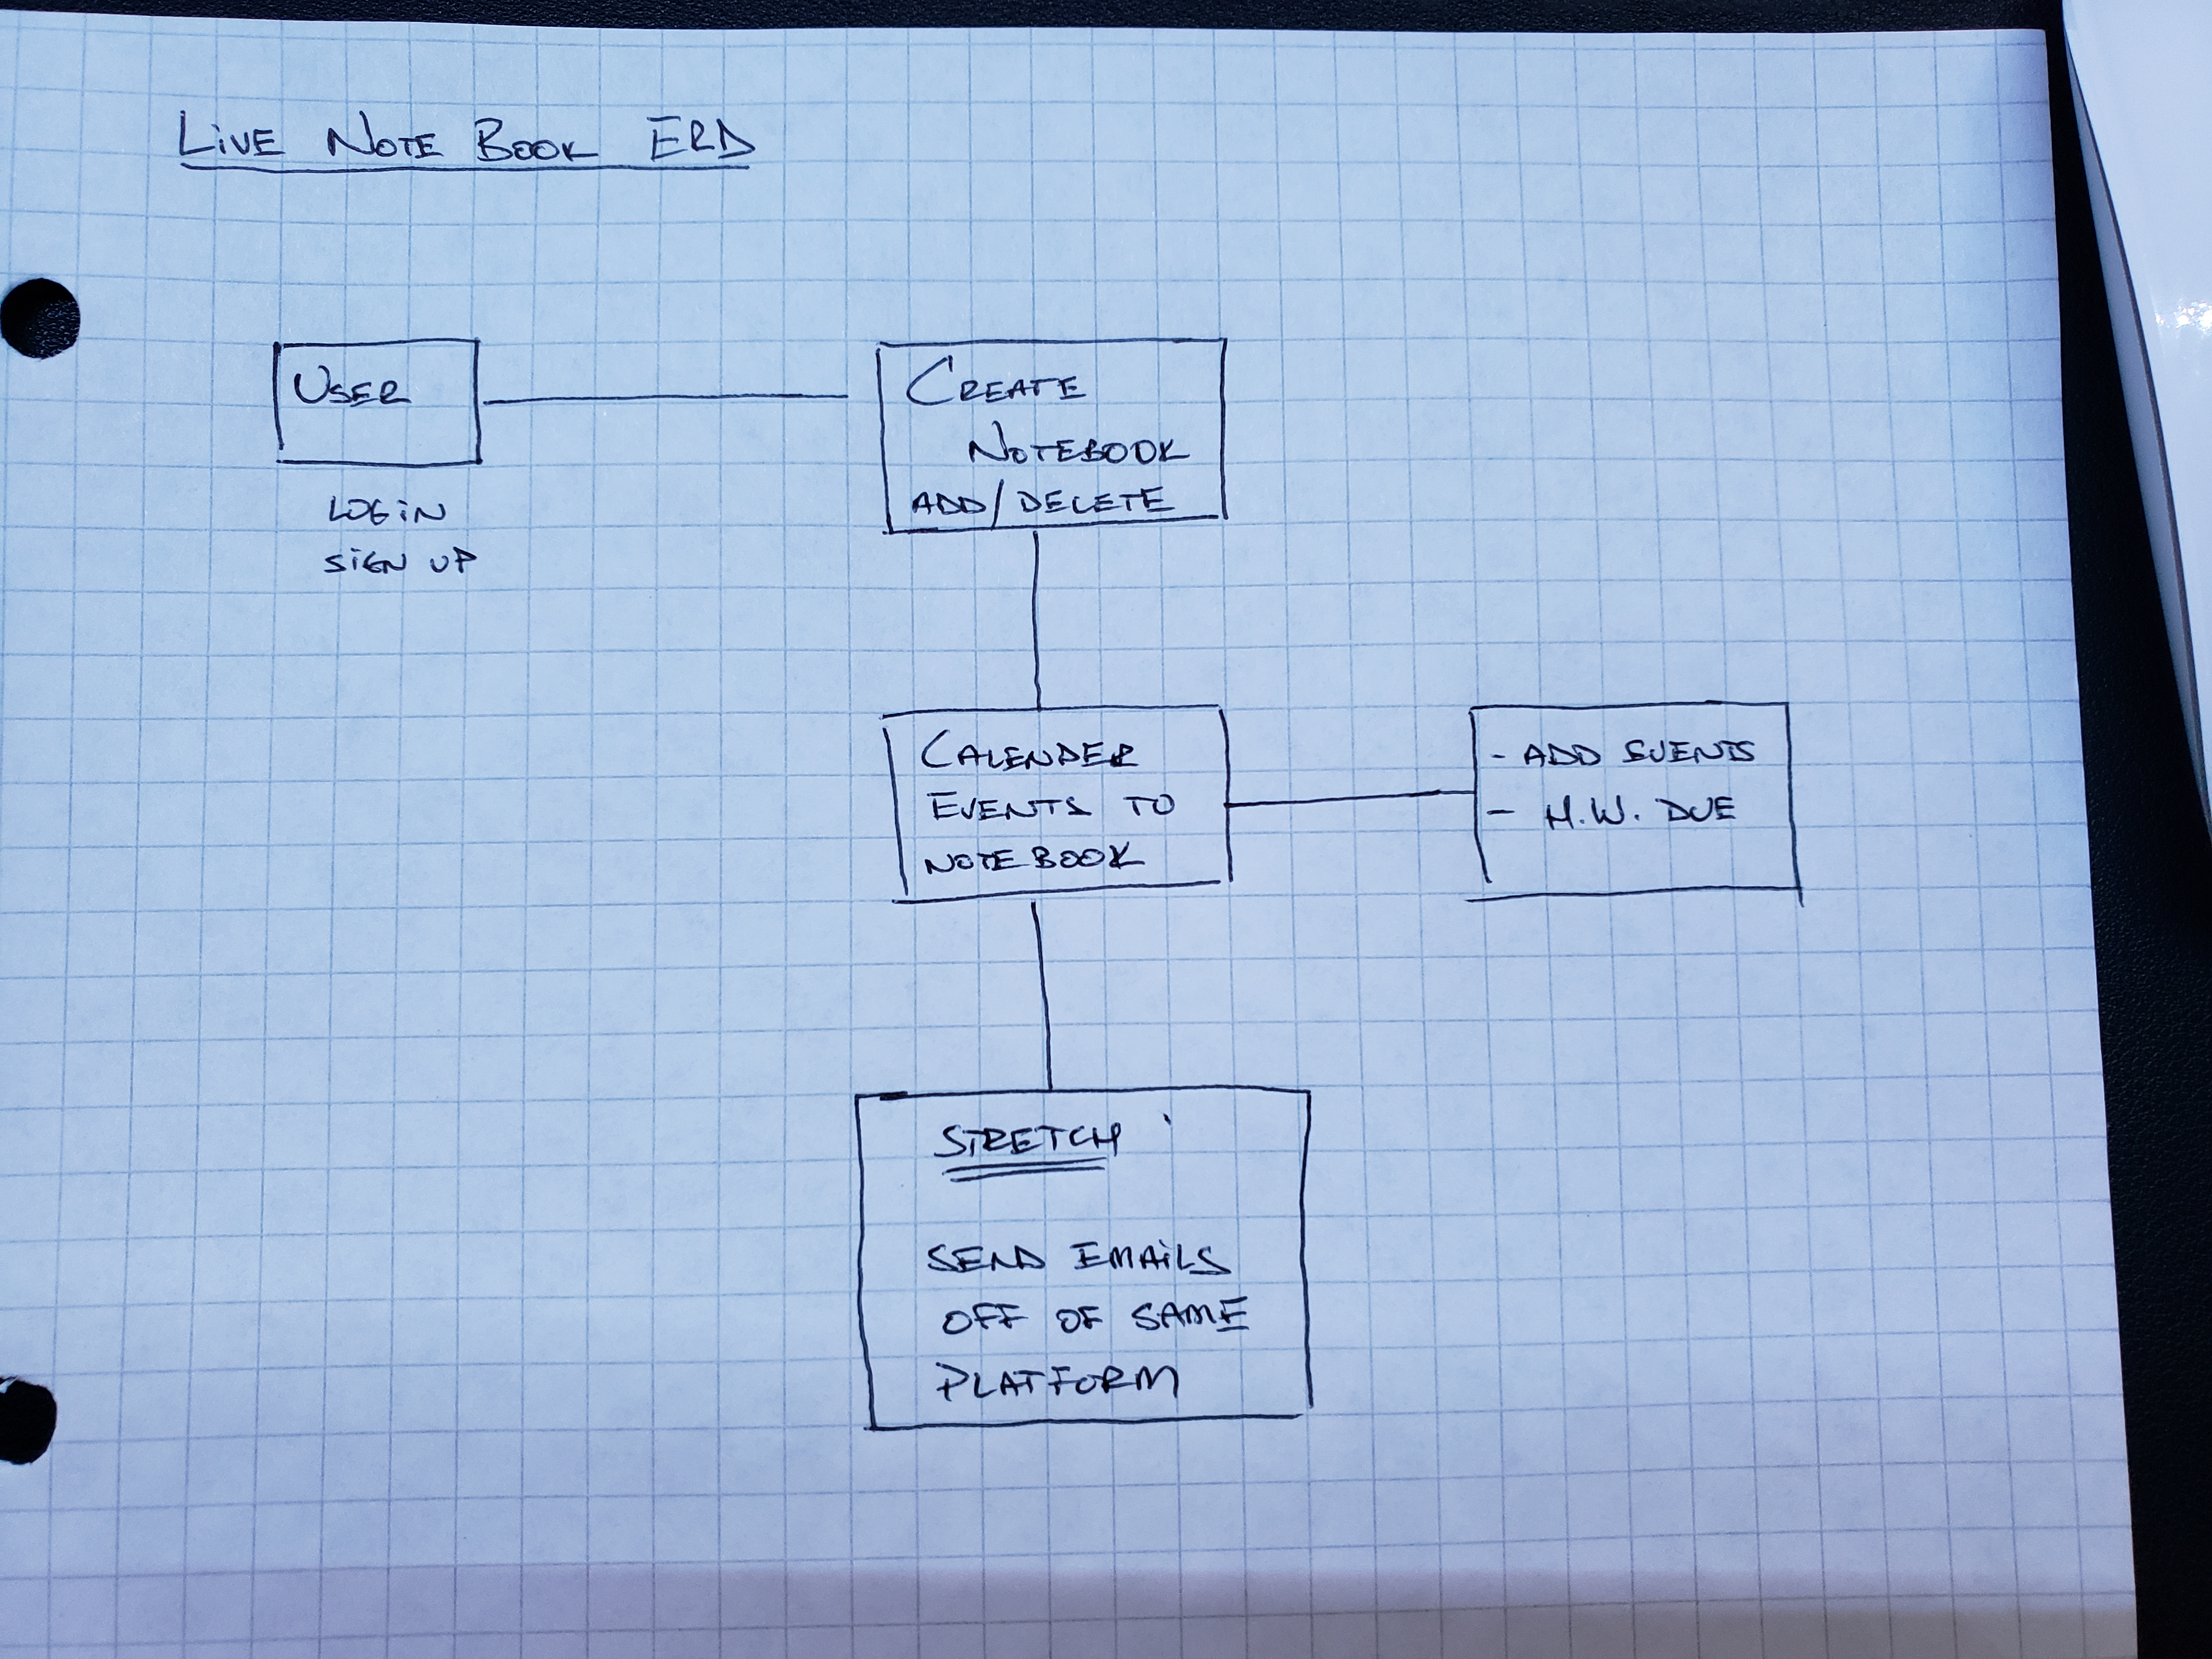 LiVE NOTE BOOK ERD
USER
LOGiN
SiGN UP
CREATE
NOTEBOOK
ADD/DELETE
CALENDER
EVENTS TO
NOTEBOOK
- ADD EVENTS
- H.W. DUE
STRETCH
SEND EMAiLS
OFF OF SAME
PLATFORM